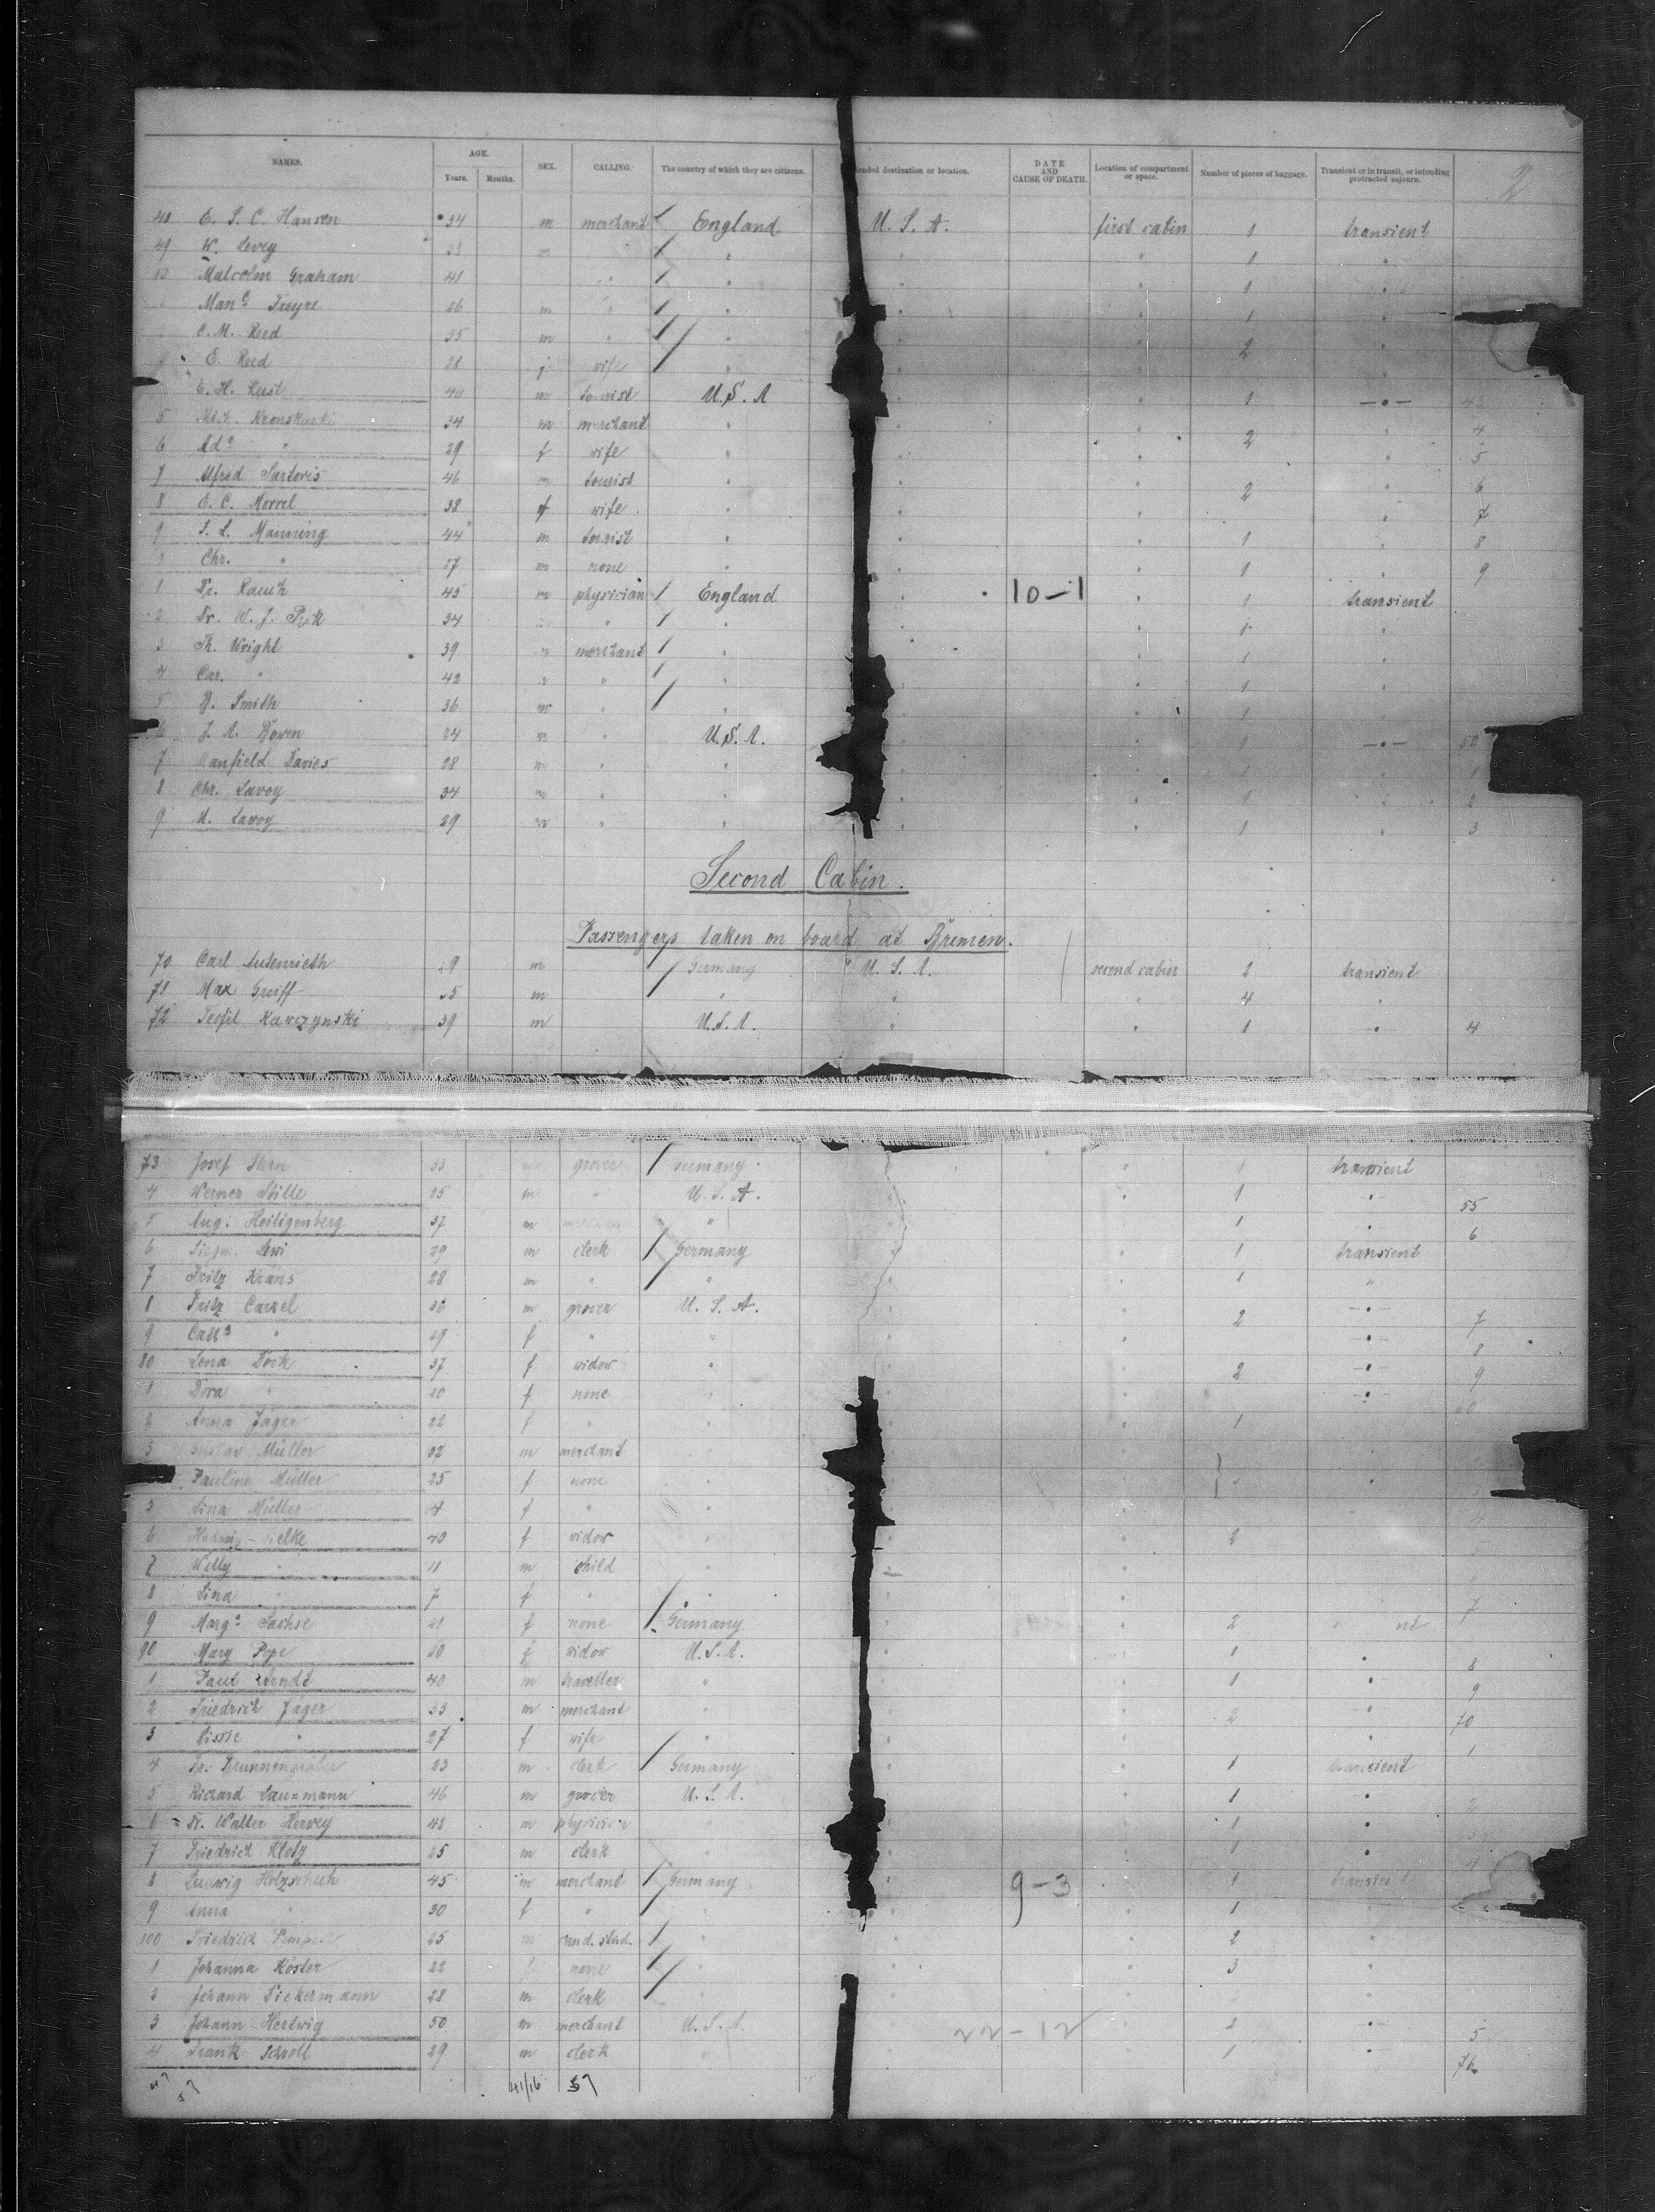 2
NAMES. AGE. Years. Months. SEX. CALLING. The country of which they are citizens. ended destination or location. DATE AND CAUSE OF DEATH. Location of compartment or space. Number of pieces of baggage. Transient or in transit, or intending protracted sojourn.
48 E. S. C. Hansen 34 m merchant England U. S. A. first cabin 1 transient
49 W. Levey m " " " 1 "
Malcolm Graham 41 " " " " 1 "
Man. Freyre 26 m " " " " 1 "
C. M. Reed 35 m " " " " 2 "
E. Reed 28 f wife " " " "
E. H. 40 m tourist U. S. A " " 1 — " — 4
5 34 m merchant " " " 2 " 4
6 Ad. " 29 f wife " " " " 5
7 Alfred Sartoris 46 m tourist " " " 2 " 6
8 E. C. Morrel 38 f wife " " " " 7
9 S. L. Manning 44 m tourist " " " 1 " 8
Chr. " 17 m none " " " 1 " 9
1 Dr. Rauch 45 m physician England " 10-1 " 1 transient
2 Dr. W. J. 34 " " " " 1 "
3 Th. Wright 39 m merchant " " " 1 "
4 Car. " 42 m " " " " 1 "
5 B. Smith 36 m " " " " 1 "
6 J. A. Bowen 24 m " U. S. A. " " 1 — " — 50
7 Manfield Davies 28 m " " " " 1 " 1
8 Chr. Lavoy 34 m " " " " 1 " 2
9 M. Lavoy 29 m " " " " 1 " 3
Second Cabin.
Passengers taken on board at Bremen.
70 Carl Autenrieth m Germany " U. S. A. second cabin 2 transient
71 Max Greiff m " " " 4 "
72 Teofil Kawczynski 39 m U. S. A. " " 1 " 4
73 Josef Stern 33 m grocer Germany " " 1 transient
4 Werner Stille 25 m " U. S. A. " " 1 " 55
5 Aug. Heiligenberg 37 m " " " 1 " 6
6 Lewi 29 m clerk Germany " " 1 transient
7 Fritz Krans 28 m " " " " 1 "
8 Fritz Carrel 36 m grocer U. S. A. " " 2 — " — 7
9 " 29 f " " " " " 8
80 Lena Bock 37 f widow " " " 2 " 9
1 Dora " 10 f none " " " " 60
2 Anna Jäger 22 f " " " " 1
3 Gustav Müller 32 m merchant " "
Pauline Müller 25 f none " " "
5 Lina Müller f " " " " 4
6 Hedwig 40 f widow " " " 2
7 Willy " 11 m child " "
8 Lina " 7 f " " " " 7
9 Marg. Sachse 21 f none Germany " " 2 nt
90 Mary Pope 30 f widow U. S. A. " " 1 " 8
1 Paul Arndt 40 m traveller " " " 1 " 9
2 Friedrich Jäger 33 m merchant " " " 2 " 70
3 Lissie " 27 f wife " " " " 1
4 Fr. 23 m clerk Germany " " 1 transient
5 Richard 46 m grocer U. S. A. " " 1 " 2
6 Dr. Walter Hervey 48 m physician " " " 1 " 3
7 Friedrich Klotz 25 m clerk " " " 1 " 4
8 Ludwig Holzschuh 45 m merchant Germany " 9-3 " 1 transient
9 Anna " 30 f " " " " 1 "
100 Friedrich 25 m cand. stud. " " " 2 "
1 Johanna Köster 22 f none " " " 3 "
2 Johann Diekermann 28 m clerk " " " "
3 Johann Hertwig 50 m merchant U. S. A. " 22-12 " 2 — " — 5
4 Frank Schroll 29 m clerk " " " 1 " 76
41/16 57